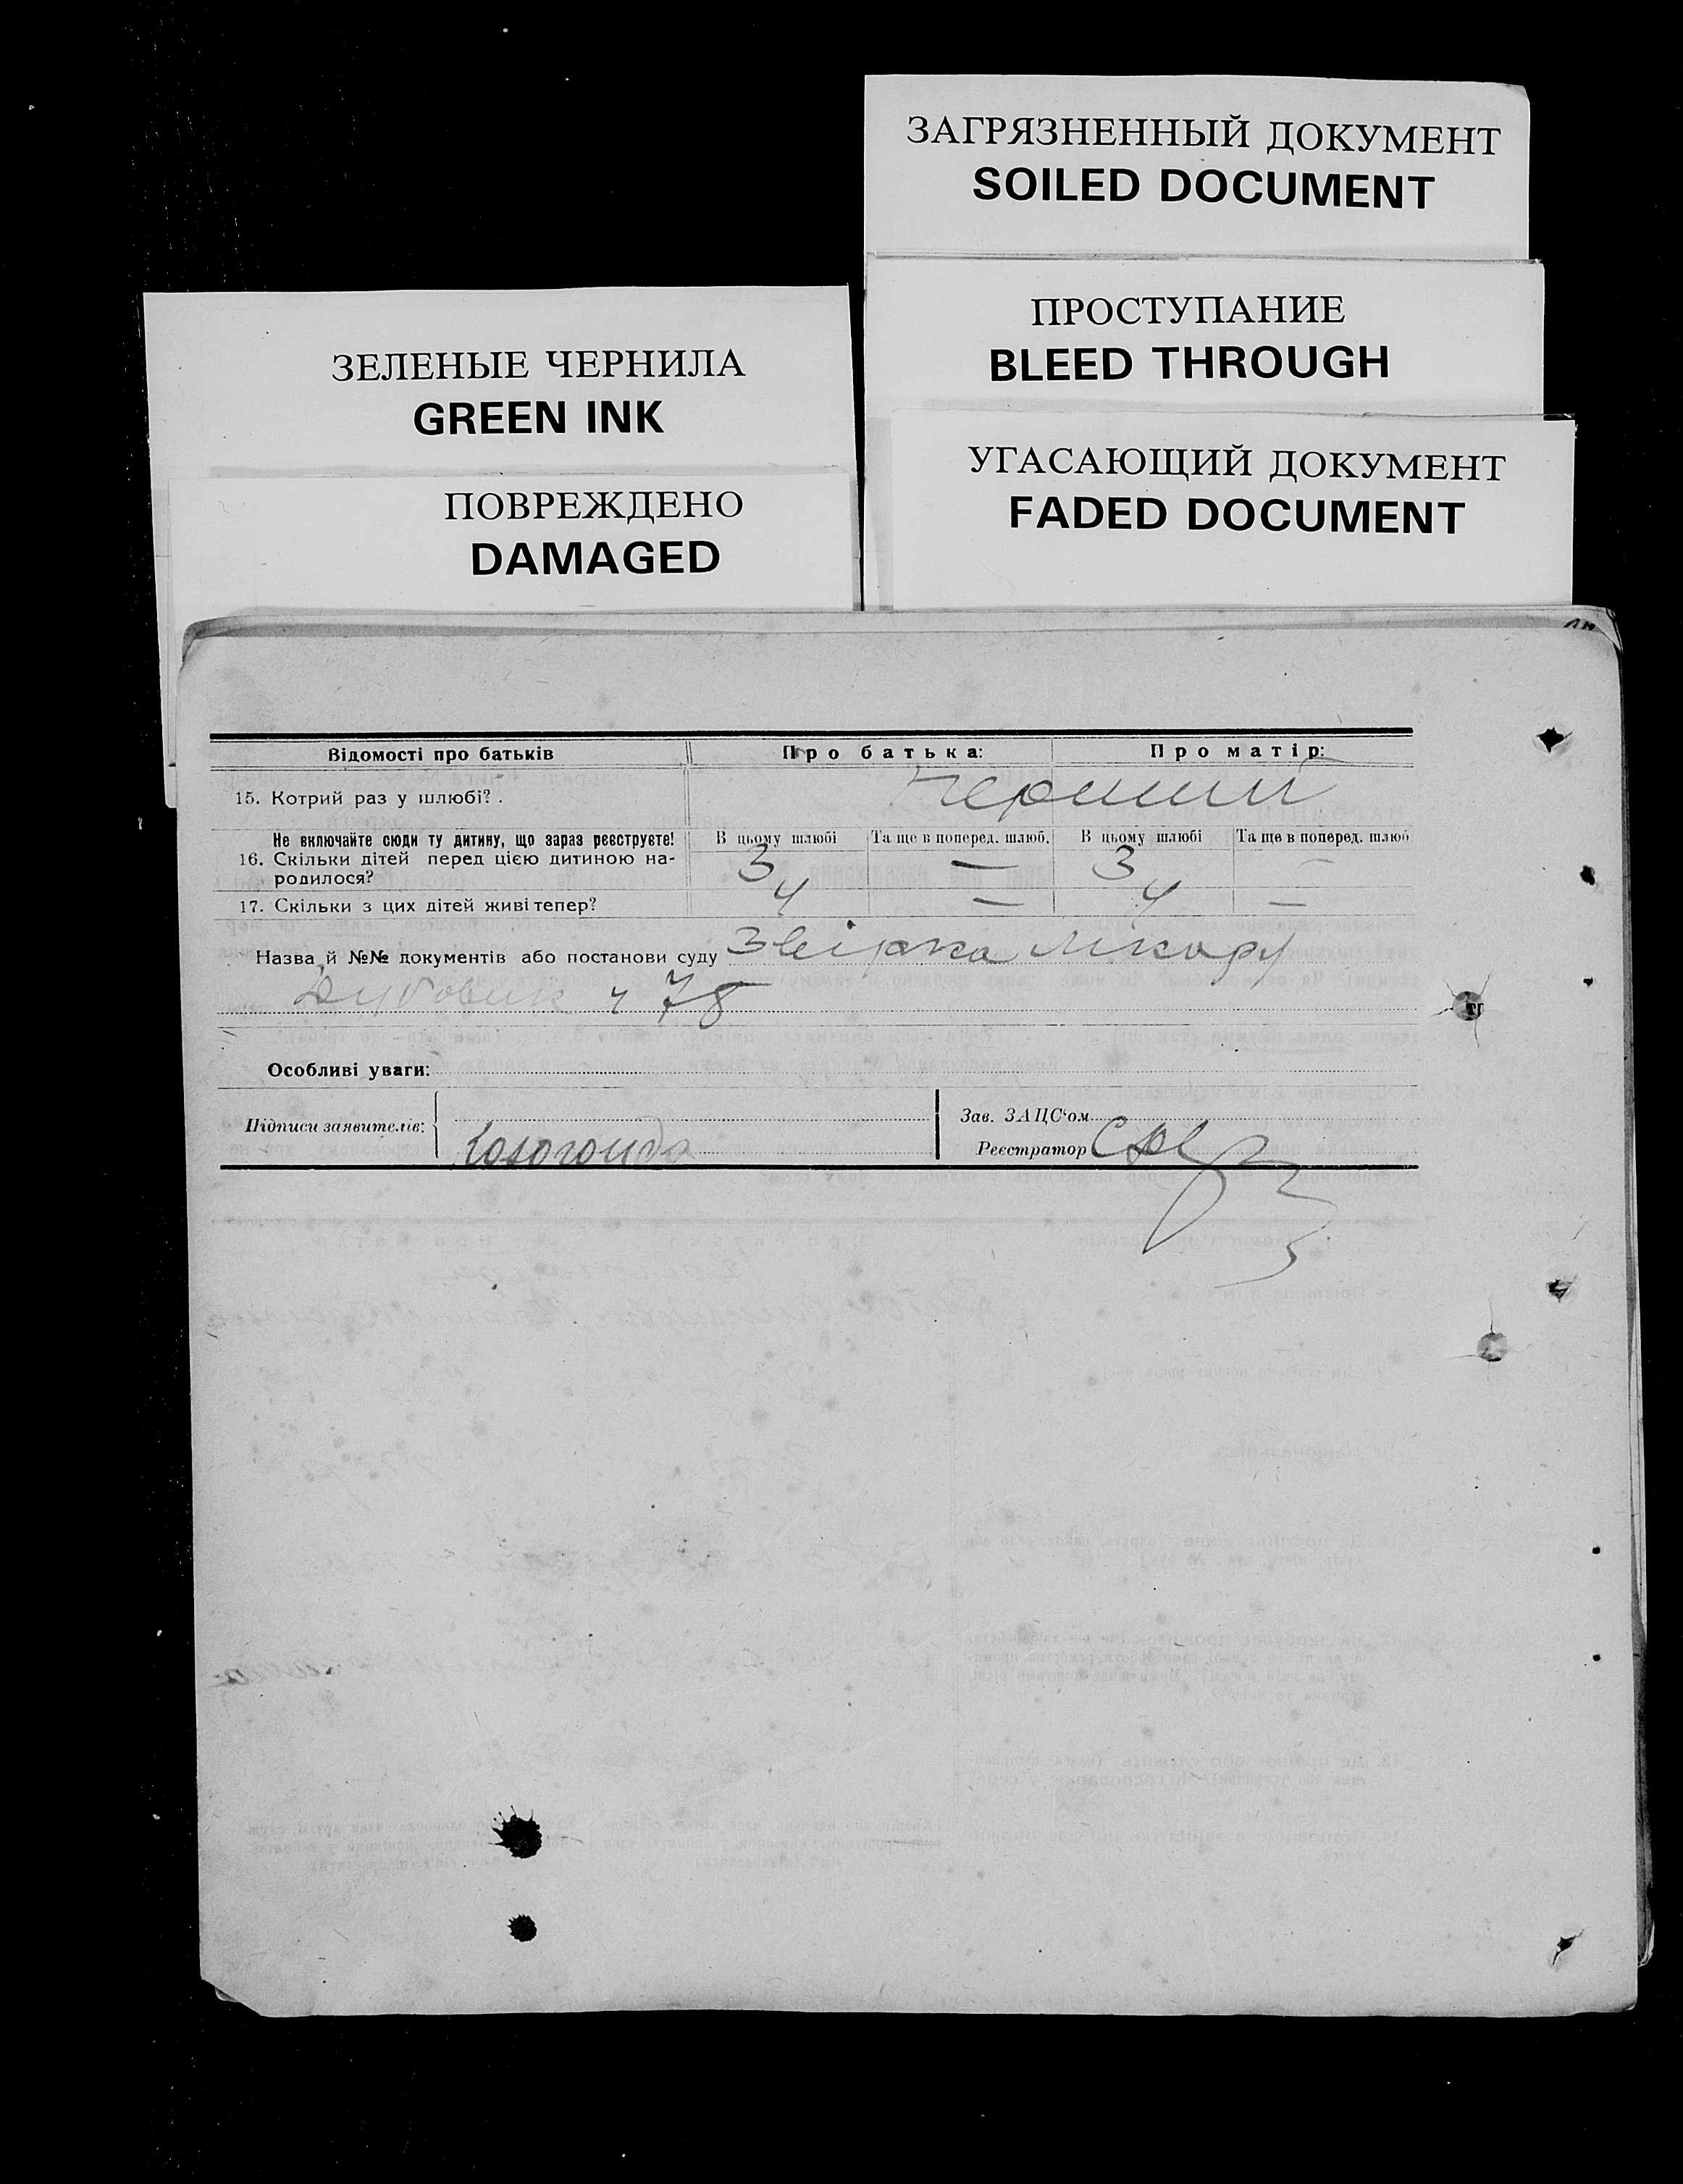 ЗАГРЯЗНЕННЫЙ ДОКУМЕНТ
SOILED DOCUMENT
ПРОСТУПАНИЕ
BLEED THROUGH
УГАСАЮЩИЙ ДОКУМЕНТ
FADED DOCUMENT
ЗЕЛЕНЫЕ ЧЕРНИЛА
GREEN INK
ПОВРЕЖДЕНО
DAMAGED
Відомості про батьків Про батька: Про матір:
15. Котрий раз у шлюбі? . перший
Не включайте сюди ту дитину, що зараз реєструєте! В цьому шлюбі Та ще в поперед. шлюб. В цьому шлюбі Та ще в поперед. шлюб
16. Скільки дітей перед цією дитиною на- 3 — 3 —
родилося?
17. Скільки з цих дітей живі тепер? 4 — 4 —
Назва й №№ документів або постанови суду Звірка лікару
Дубовик ч 78
Особливі уваги:
Підписи заявителів:
Зав. ЗАЦС'ом
Реєстратор